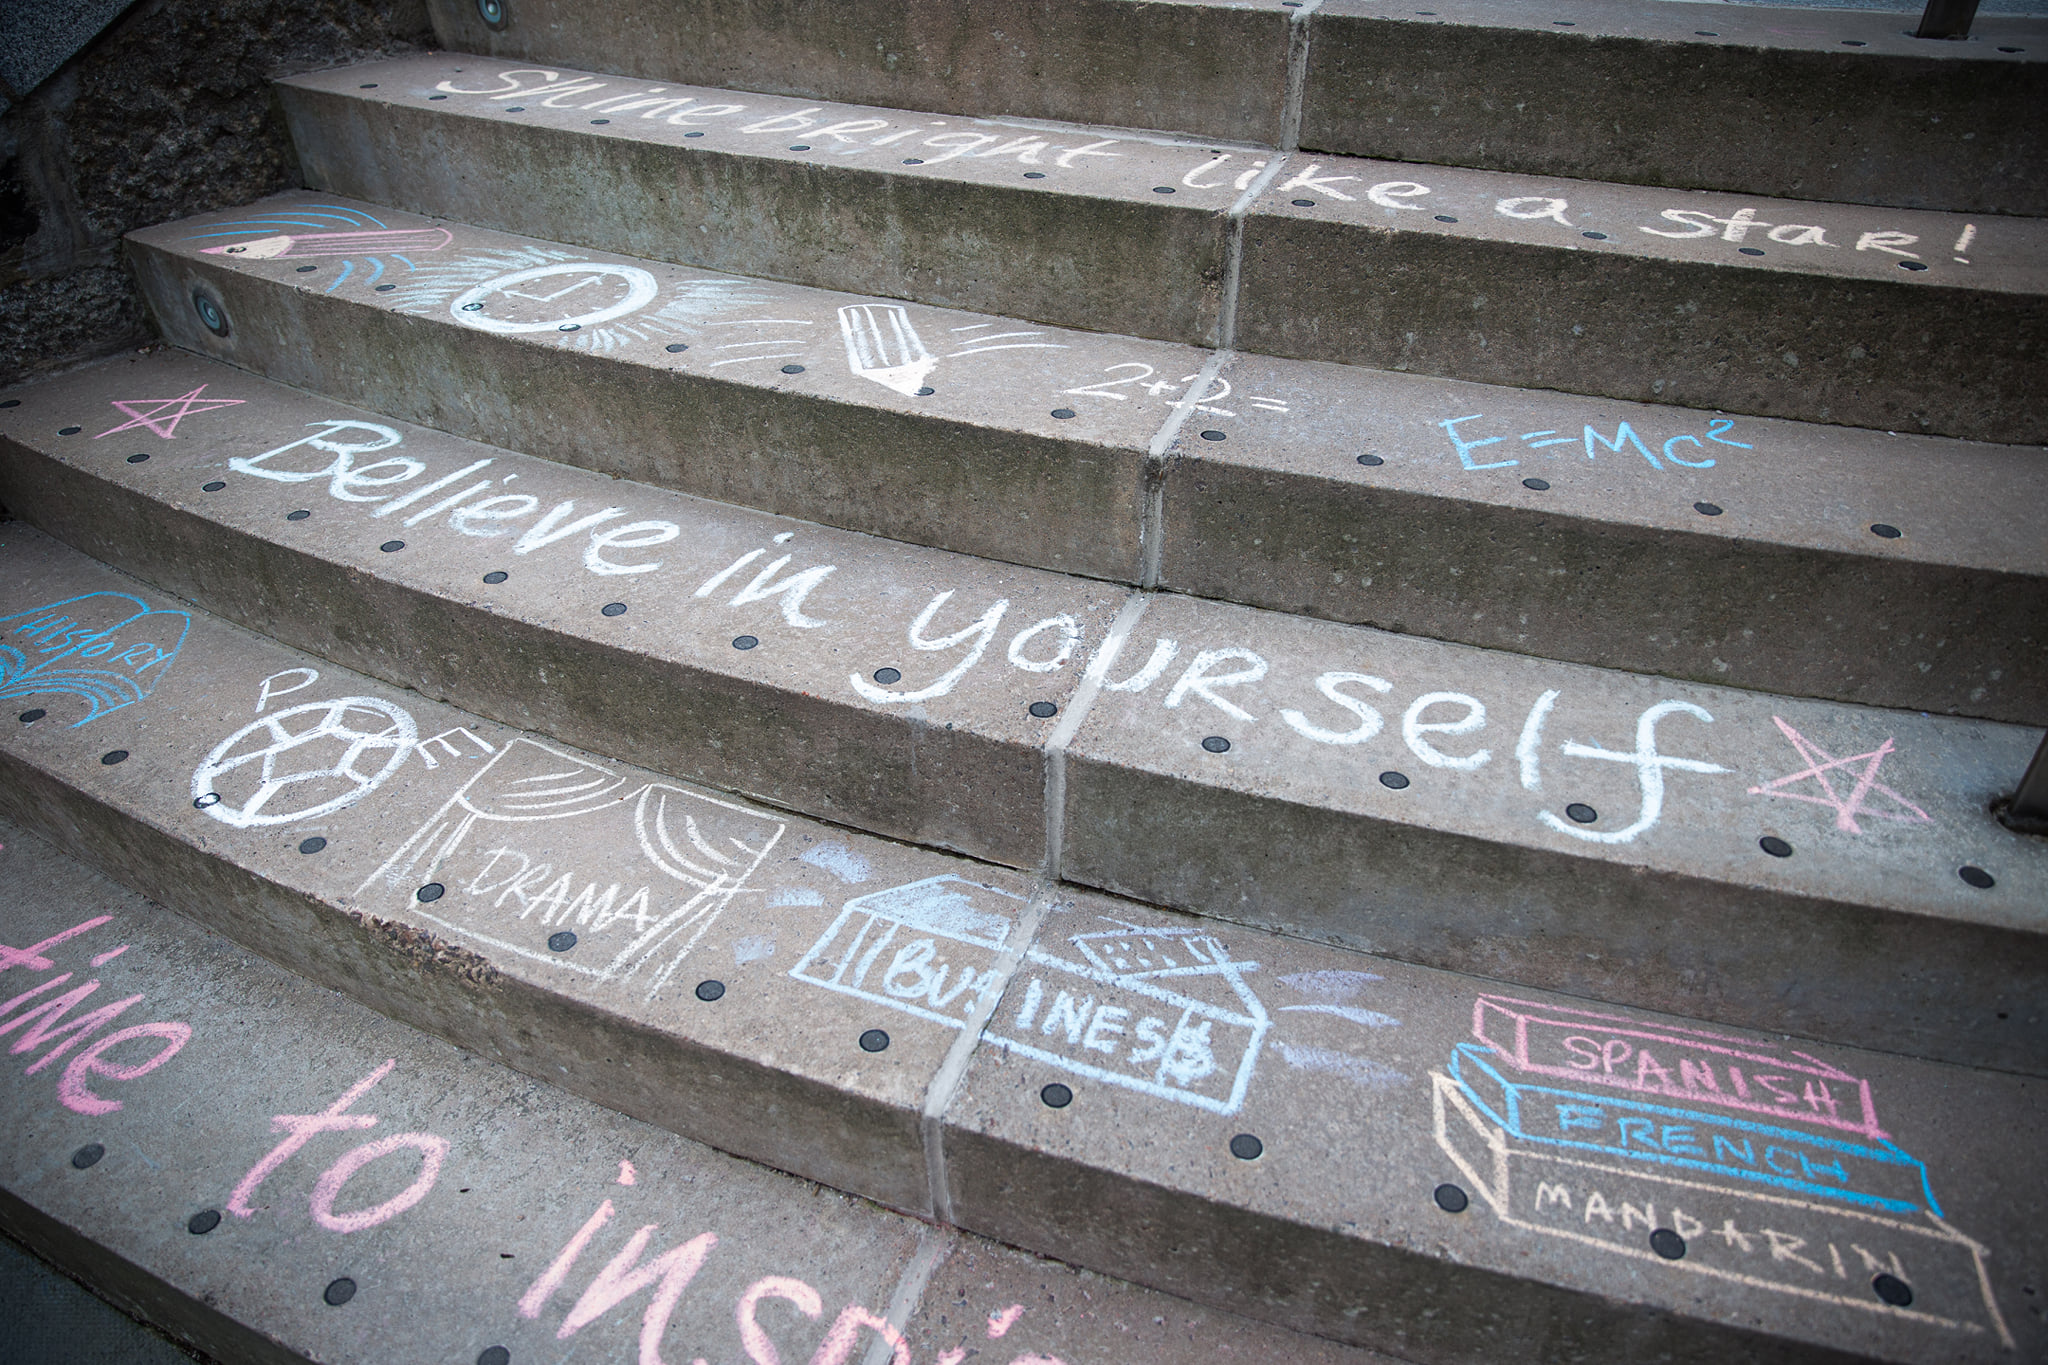 Shine bright like a star!
2+2=
E=Mc²
Believe in yourself
HISTORY
PE
DRAMA
BUSINESS
SPANISH
FRENCH
MANDARIN
time to inspi